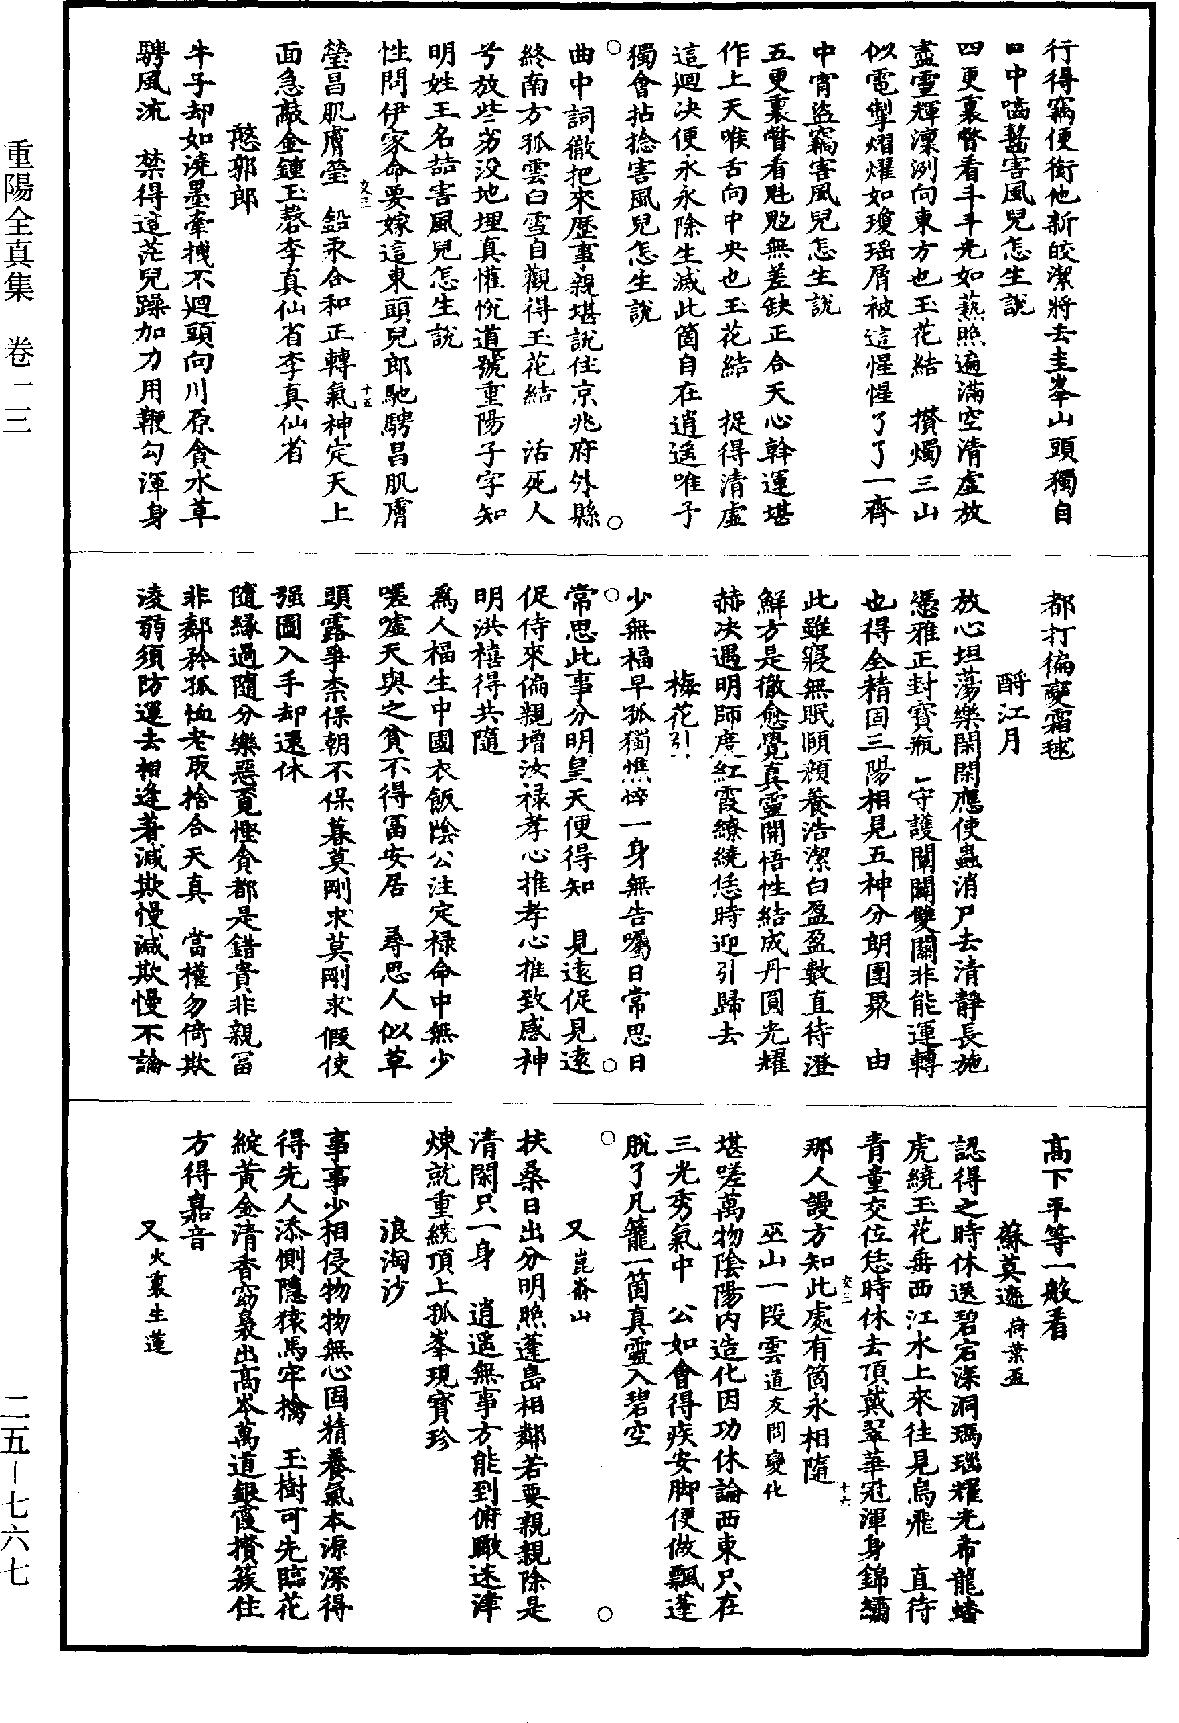 行得竊便銜他新皎潔將去圭峯山頭獨自
口中嚙齧害風兒怎生說
四更裏瞥看斗斗光如爇照遍滿空清虛放
盡雪輝凜冽向東方也玉花結　攢燭三山
似電掣熠燿如瓊瑶屑被這惺惺了了一齊
中宵盜竊害風兒怎生說
五更裏瞥看魁魁無差缺正合天心斡運堪
作上天喉舌向中央也玉花結　捉得清虛
這迴决便永永除生滅此箇自在逍遥唯子
獨會拈捻害風兒怎生說
曲中詞徹把來歷事親堪說住京兆府外縣
終南方孤雲白雪自觀得玉花結　活死人
兮放些劣没地埋真懽悅道號重陽子字知
明姓王名喆害風兒怎生說
性問伊家命要嫁這東頭兒郎馳騁昌肌膚
瑩昌肌膚瑩　鉛汞合和正轉氣神定天上
面急敲金鍾玉磬李真仙省李真仙省
憨郭郎
牛子却如澆墨牽拽不迴頭向川原貪水草
騁風流　禁得這茫兒躁加力用鞭勾渾身
都打徧變霜毬
酹江月
放心坦蕩樂閑閑應使蟲消尸去清靜長施
憑雅正封寶瓶一守護闡闢雙關非能運轉
也得全精固三陽相見五神分朗團聚　由
此雖寢無眠頤顏養浩潔白盈盈數直待澄
鮮方是徹愈覺真靈開悟性結成丹圓光耀
赫决遇明師度紅霞繚繞恁時迎引歸去
梅花引
少無福早孤獨憔悴一身無告囑日常思日
常思此事分明皇天便得知　見遠促見遠
促侍來偏親增汝禄孝心推孝心推致感神
明洪禧得共隨
爲人福生中國衣飯陰公注定禄命中無少
嗟嘘天與之貧不得冨安居　尋思人似草
頭露爭柰保朝不保暮莫剛求莫剛求假使
强圖入手却還休
隨緣過隨分樂惡覔慳貪都是錯貴非親冨
非鄰矜孤恤老取捨合天真　當權勿倚欺
淩弱須防運去相逢著減欺慢減欺慢不論
高下平等一般看
蘇莫遮荷葉盃
認得之時休送碧宕深洞瑪瑙耀光希龍蟠
虎繞玉花垂西江水上來往見烏飛　直待
青童交位恁時休去頂戴翠華冠渾身錦繡
那人謾方知此處有箇永相隨
巫山一段雲道友問變化
堪嗟萬物陰陽内造化因功休論西東只在
三光秀氣中　公如會得疾安脚便做飄蓬
脱了凡籠一箇真靈入碧空
又崑崙山
扶桑日出分明照蓬島相鄰若要親親除是
清閑只一身　逍遥無事方能到俯瞰迷津
煉就重繞頂上孤峯現寳珍
浪淘沙
事事少相侵物物無心固精養氣本源深得
得先人添惻隱猿馬牢擒　玉樹可先臨花
綻黄金清香窈裊出高岑萬道銀霞攢簇住
方得嘉音
又火裏生蓮
重陽全真集　卷一三
二五—七六七